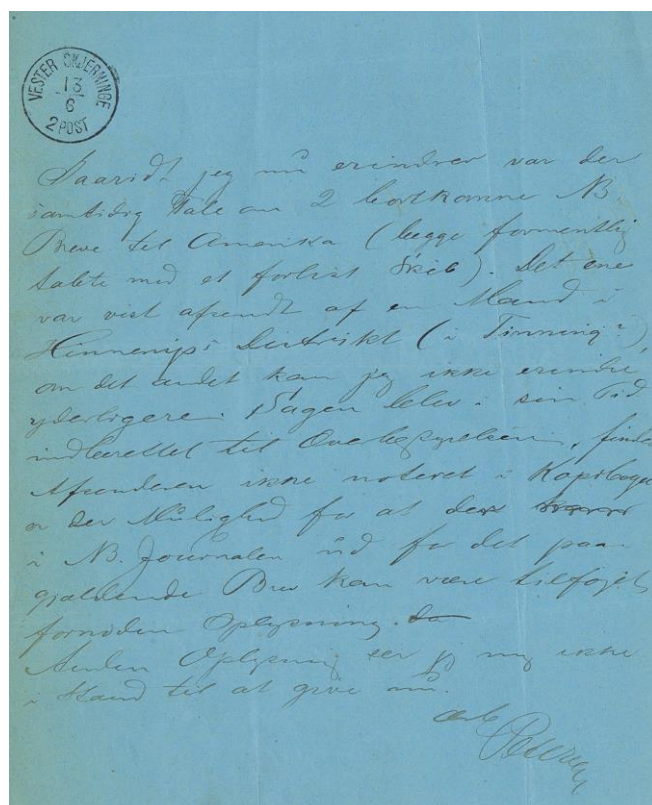 VESTER SKJERNINGE
13
6
2 POST
Saavidt jeg nu erindrer var der
samtidig Tale om 2 bortkomne NB.
Breve til Amerika (begge formentlig
tabte med et forlist Skib). Det ene
var vist afsendt af en Mand i
Distrikt (i Tinning?),
om det andet kan jeg ikke erindre
yderligere. Sagen blev i sin Tid
indberettet til Overbestyrelsen, findes
Afsenderen ikke noteret i Kopibogen
er der Mulighed for at der
i NB. Journalen ud for det paa-
gjældende Brev kan være tilføjet
fornøden Oplysning. da
Anden Oplysning ser jeg mig ikke
i Stand til at give nu.